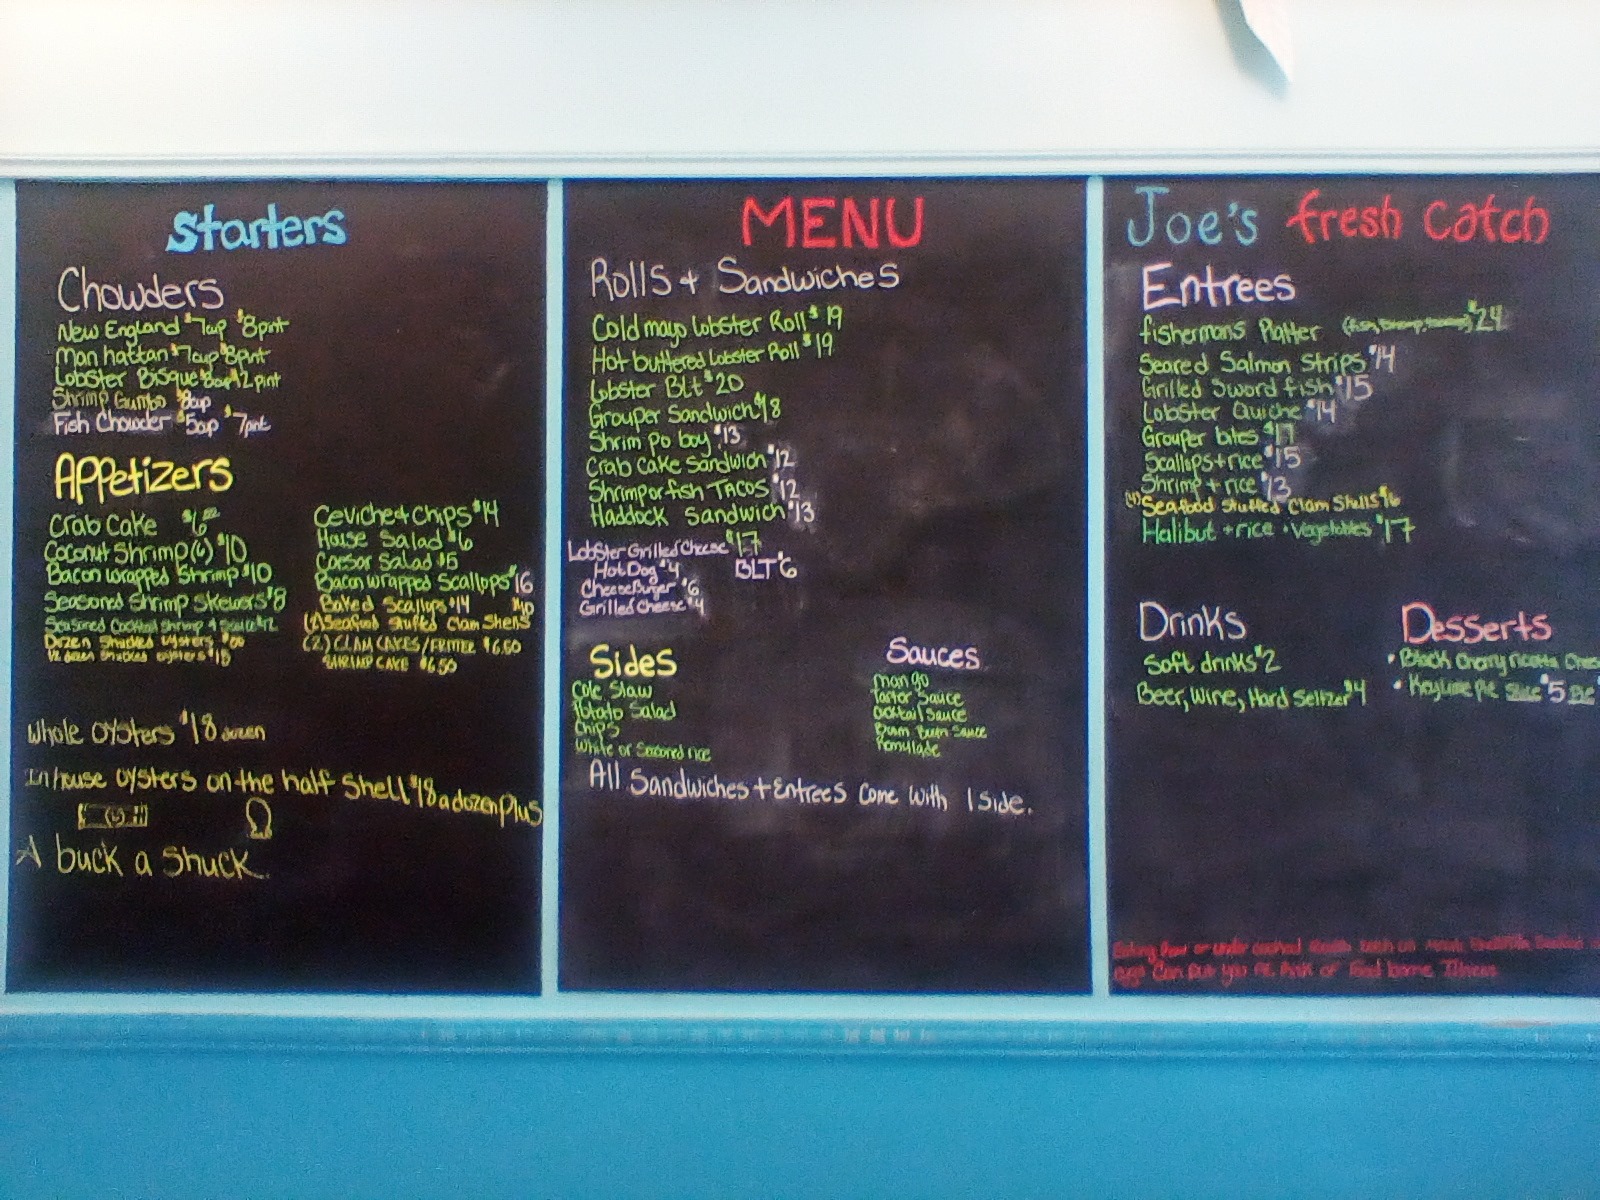 Starters
Chowders
New England $7cup $8pint
Manhattan $7cup $8pint
Lobster Bisque $8cup $12pint
Shrimp Gumbo $8cup
Fish Chowder $5cup $7pint
Appetizers
Crab Cake $6
Coconut Shrimp(6) $10
Bacon wrapped Shrimp $10
Seasoned Shrimp Skewers $8
Seasoned Cocktail Shrimp + Sauce $12
Dozen Shucked oysters
1/2 dozen Shucked oysters $18
Ceviche + Chips $14
House Salad $6
Caesar Salad $5
Bacon wrapped Scallops $16
Baked Scallops $14
(2) Seafood Stuffed Clam Shells $10
(2) CLAM CAKES/FRITTER $6.50
SHRIMP CAKE $6.50
Whole oysters $18 dozen
In house oysters on the half Shell $18 a dozen Plus
A buck a Shuck
MENU
Rolls + Sandwiches
Cold mayo lobster Roll $19
Hot buttered Lobster Roll $19
Lobster Blt $20
Grouper Sandwich $18
Shrim Po boy $13
Crab cake Sandwich $12
Shrimp or fish TACOS $12
Haddock Sandwich $13
Lobster Grilled Cheese $17
Hot Dog $4 BLT $6
CheeseBurger $6
Grilled Cheese $4
Sides
Cole Slaw
Potato Salad
Chips
White or Seasoned rice
Sauces
mango
Tartar Sauce
Cocktail Sauce
Bum Bum Sauce
Remylade
All Sandwiches + Entrees come with 1 Side.
Joe's fresh catch
Entrees
fishermans Platter $24
Seared Salmon Strips $14
Grilled Sword fish $15
Lobster Quiche $14
Grouper bites $17
Scallops + rice $15
Shrimp + rice $13
(4) Seafood Stuffed Clam Shells $16
Halibut + rice + Vegetables $17
Drinks
Soft drinks $2
Beer, Wine, Hard Seltzer $4
Desserts
• Black Cherry ricotta
• Keylime Pie Slice $5 Pie
Eating Raw or under cooked
eggs Can Put you At Risk of Food borne Illness